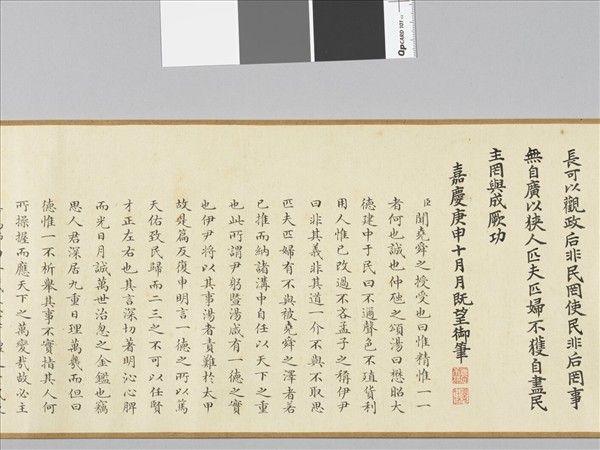 QPCARD 101
長可以觀政后非民罔使民非后罔事
無自廣以狹人匹夫匹婦不獲自盡民
主罔與成厥功
嘉慶庚申十月月既望御筆
臣聞堯舜之授受也曰惟精惟一一
者何也誠也仲虺之頌湯曰懋昭大
德建中于民曰不邇聲色不殖貨利
用人惟已改過不吝孟子之稱伊尹
曰非其義非其道一介不與不取思
匹夫匹婦有不與被堯舜之澤者若
已推而納諸溝中自任以天下之重
也此所謂尹躬暨湯咸有一德之實
也伊尹將以其事湯者責難於太甲
故是篇反復申明言一德之所以篤
天佑致民歸而二三之不可以任賢
才正左右也其言深切著明沁心脾
而光日月誠萬世治忽之金鑑也竊
思人君深居九重日理萬幾而但曰
德惟一不析舉其事不實指其人何
所操握而應天下之萬變哉故必主